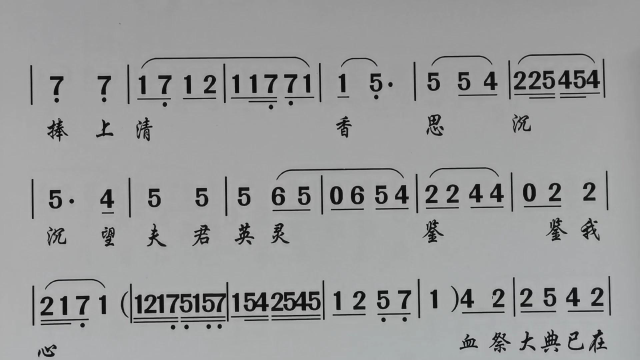 | 7 7 | 1 7 1 2 | 1 1 7 7 1 | 1 5· | 5 5 4 | 2 2 5 4 5 4 |
捧 上 清 香 思 沉
| 5· 4 | 5 5 | 5 6 5 | 0 6 5 4 | 2 2 4 4 | 0 2 2 |
沉 望 夫 君 英 灵 鉴 鉴 我
| 2 1 7 1 ( | 1 2 1 7 5 1 5 7 | 1 5 4 2 5 4 5 | 1 2 5 7 | 1 ) 4 2 | 2 5 4 2 |
心 血 祭 大 典 已 在